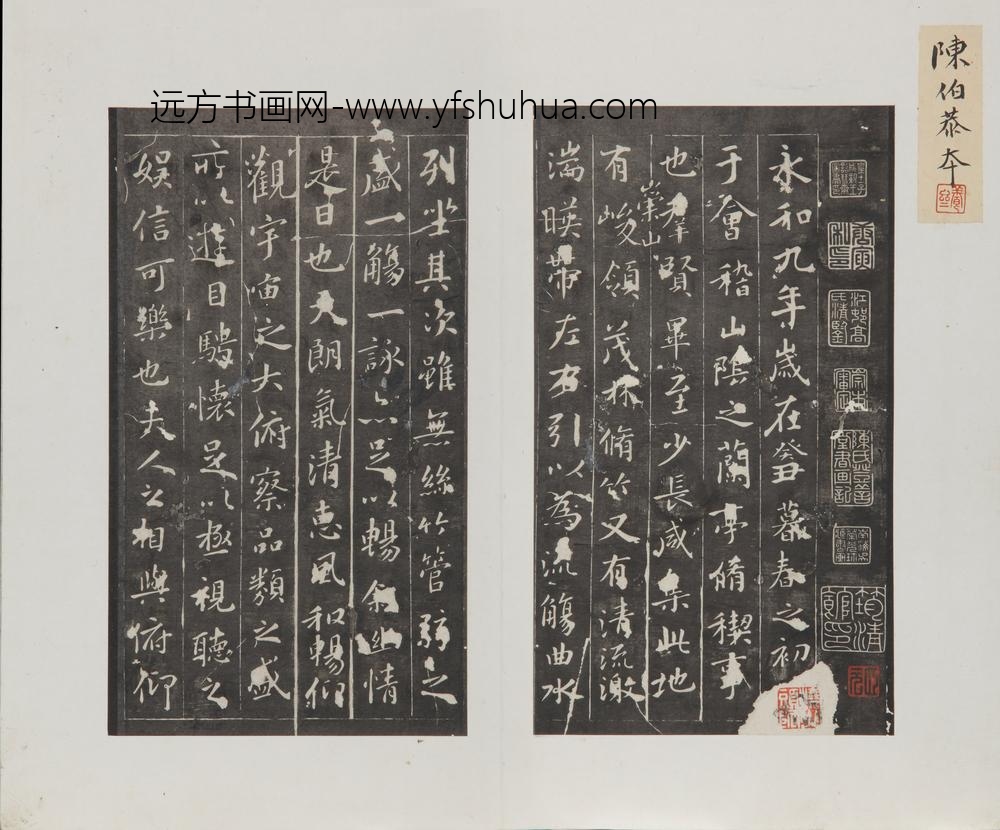 远方书画网-www.yfshuhua.com
陳伯恭本
永和九年歲在癸丑暮春之初
于會稽山陰之蘭亭脩稧事
也群賢畢至少長咸集此地
有崇山峻領茂林脩竹又有清流激
湍暎帶左右引以為流觴曲水
列坐其次雖無絲竹管弦之
盛一觴一詠亦足以暢敘幽情
是日也天朗氣清惠風和暢仰
觀宇宙之大俯察品類之盛
所以遊目騁懷足以極視聽之
娛信可樂也夫人之相與俯仰